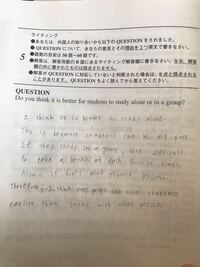 ライティング
●あなたは、外国人の知り合いから以下の QUESTION をされました。
●QUESTION について、あなたの意見とその理由を2つ英文で書きなさい。
5 ●語数の目安は50語〜60語です。
●解答は、解答用紙のB面にあるライティング解答欄に書きなさい。なお、解答欄の外に書かれたものは採点されません。
●解答が QUESTION に対応していないと判断された場合は、0点と採点されることがあります。QUESTION をよく読んでから答えてください。
QUESTION
Do you think it is better for students to study alone or in a group?
I think it is better to study alone.
This is because students can be my pace.
If they study in a group, they difficult
to take a break at each favorite times.
Also, it don't mind around
Therefore, I think people can more
earlier than study with other person.